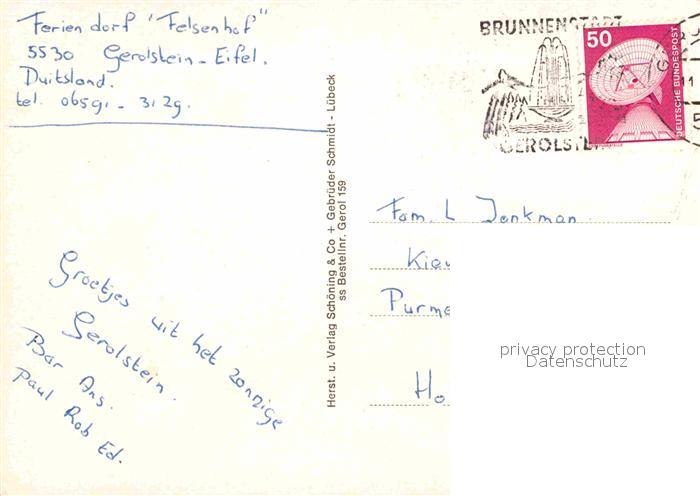 Feriendorf "Felsenhof"
5530 Gerolstein - Eifel.
Duitsland.
tel. 06591 - 3129.
Groetjes uit het zonnige
Gerolstein.
Bar Ans.
Paul Rob Ed.
Herst. u. Verlag Schöning & Co + Gebrüder Schmidt - Lübeck
ss Bestellnr. Gerol 159
BRUNNENSTADT
GEROLSTEIN
50
DEUTSCHE BUNDESPOST
Fam. L Jonkman.
Kiev
Purme
Ho
privacy protection
Datenschutz